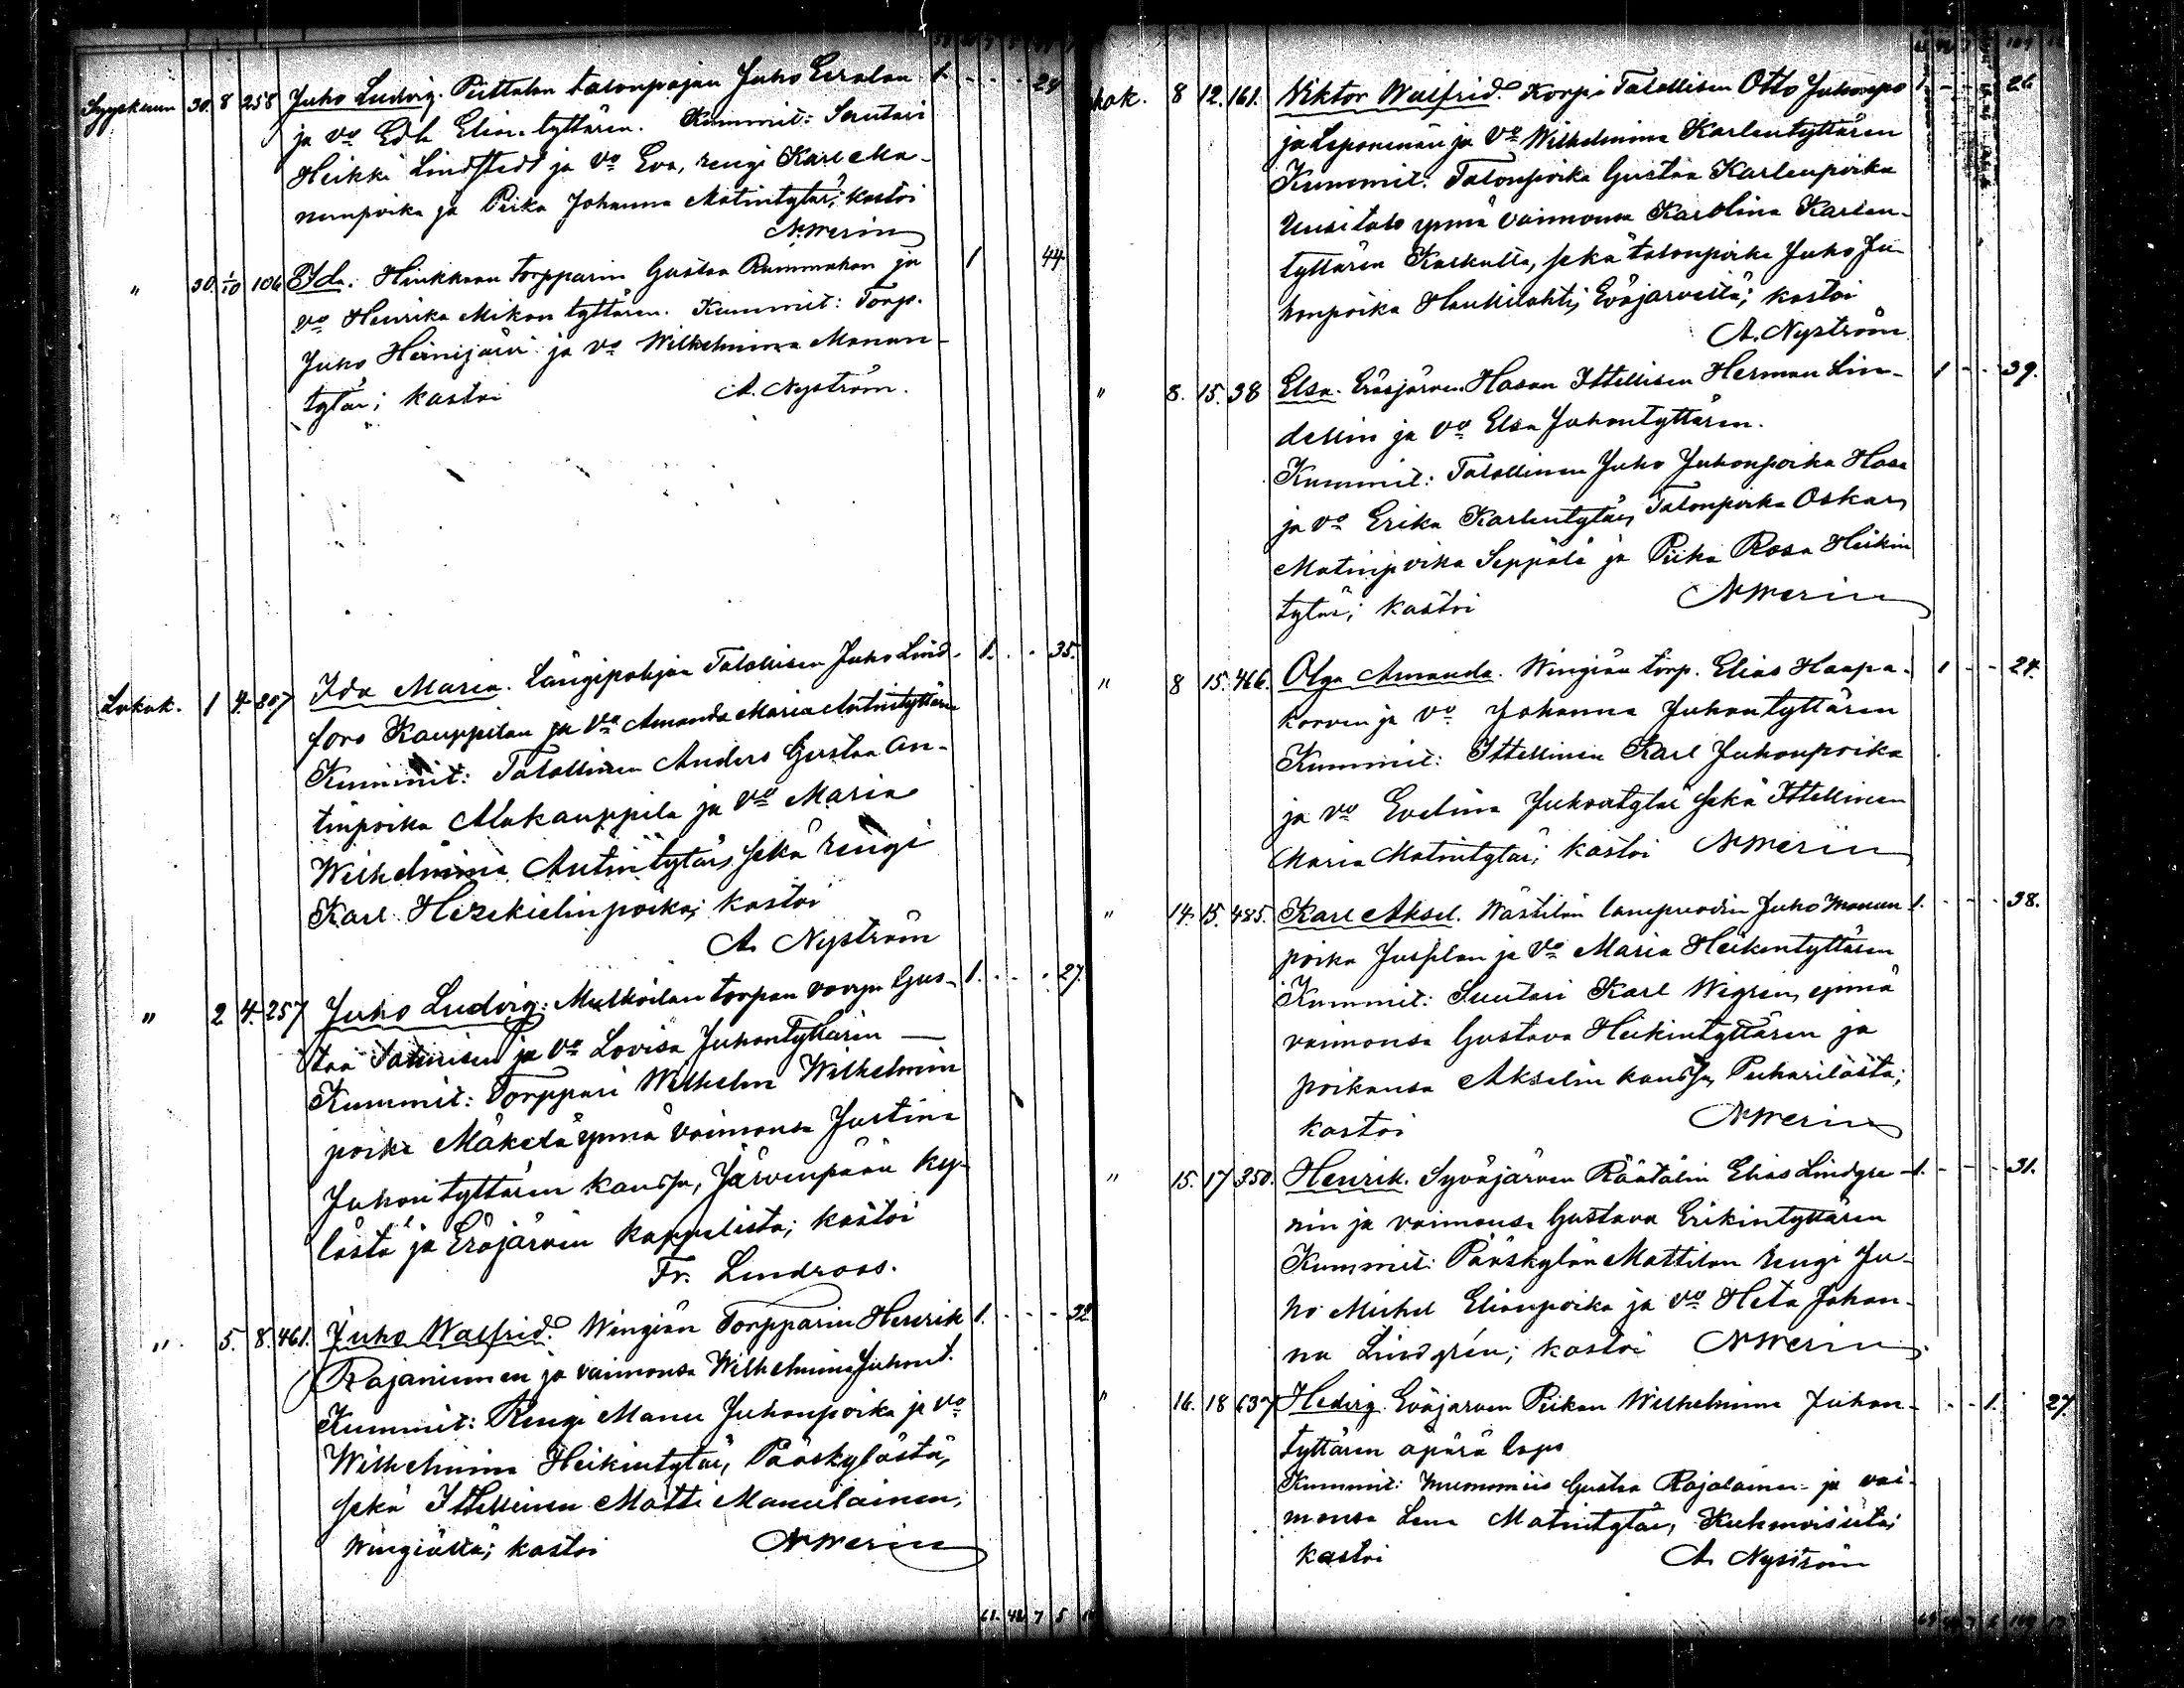 Syyskuun 30. 8 258 Juho Ludvig. Puttolan talonpojan Juho Eerolan 1. - - - 24
ja vo Edla Elian tyttären. Kummit: Suutari
Heikki Lindstedt ja vo Eva, rengi Karl Ma-
nunpoika ja Piika Johanna Matintytär; kastoi
A. Merin
" 30. 1/10 106 Ida. Hirkkaan Torpparin Gustaa Rummakon ja 1 44
vo Henrika Mikon tyttären. Kummit: Torp.
Juho Heinijärvi ja vo Wilhelmina Manun-
tytär; kastoi A. Nyström.
Lokak. 1 4. 207 Ida Maria. Längipohjan Talollisen Juho Lind- 1. - - 35.
fors Kauppilan ja vo Amanda Maria Antintyttären
Kummit: Talollinen Anders Gustaa An-
tinpoika Alakauppila ja vo Maria
Wilhelmina Antintytär, sekä rengi
Karl Hezekielinpoika; kastoi
A. Nyström
" 2 4. 257 Juho Ludvig. Mutkoilan torpan vouyn Gus- 1. - - 27.
taa Salmisen ja vo Lovisa Juhontyttären
Kummit: Torppari Wilhelm Wilhelmin
poika Mäkelä ynnä vaimonsa Justina
Juhon tyttären kanssa, Järvenpään ky-
lästä ja Eräjärven kappelista; kastoi
Fr. Lindroos.
" 5. 8. 461. Juho Walfrid. Wingiän Torpparin Henrik 1. - - - 32
Rajaniemen ja vaimonsa Wilhelmina Juhont.
Kummit: Rengi Manu Juhonpoika ja vo
Wilhelmina Heikintytär, Pääskylästä,
sekä Ittellinen Matti Manulainen,
Wingiältä; kastoi A. Merin
61. 42 7 5
kok. 8 12. 161. Viktor Walfrid. Korpi Talollisen Otto Juhonpo 1 - - - 26
ja Leponiemen ja vo Wilhelmina Karlentyttären
Kummit: Talonpoika Gustaa Karlenpoika
Uusitalo ynnä vaimonsa Karolina Karlen-
tyttären Kaskulta, sekä talonpoika Juho Ju-
honpoika Haukilahti, Eväjärveltä; kastoi
A. Nyström
" 8. 15. 38 Elsa. Eräsjärven Hasan Ittellisen Herman Lin- 1 - - - 39.
dellin ja vo Elsa Juhontyttären.
Kummit: Talollinen Juho Juhonpoika Hasa
ja vo Erika Karlentytär, Talonpoika Oskar
Matinpoika Seppälä ja Piika Rosa Heikin
tytär; kastoi A. Merin
" 8 15. 466. Olga Amanda. Wingiän torp. Elias Haapa- 1 - - 24.
korven ja vo Johanna Juhontyttären
Kummit: Ittellinen Karl Juhonpoika
ja vo Evelina Juhontytär sekä Ittellinen
Maria Matintytär; kastoi A. Merin
" 14. 15. 485. Karl Aksel. Wästilän lampuodin Juho Manun 1. - - - 38.
poika Jussilan ja vo Maria Heikintyttären
Kummit: Suutari Karl Wigren, ynnä
vaimonsa Gustava Heikintyttären ja
poikansa Akselin kanssa, Puharilasta;
kastoi A. Merin
" 15. 17 350. Henrik. Syväjärven Räätälin Elias Lindgre- 1. - - - 31.
nin ja vaimonsa Gustava Erikintyttären
Kummit: Pääskylän Mattilan rengi Ju-
ho Mikael Elianpoika ja vo Heta Johan-
na Lindgrén; kastoi A. Merin
" 16. 18 637 Hedvig Eväjärven Piikan Wilhelmina Juhon- - - 1. 27.
tyttären äpärä laps
Kummit: Gustaa Rajalainen ja vai-
monsa Lena Matintytär, Kuhmoisista;
kastoi A. Nyström